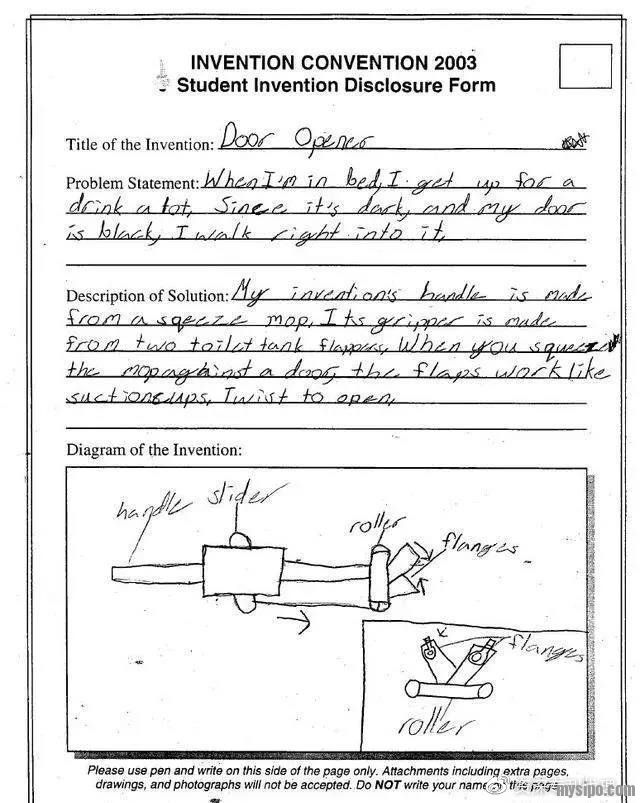 INVENTION CONVENTION 2003
Student Invention Disclosure Form
Title of the Invention: Door Opener
Problem Statement: When I'm in bed, I get up for a
drink a lot, Since it's dark, and my door
is black, I walk right into it,
Description of Solution: My invention's handle is made
from a sqeeze mop, Its gripper is made
from two toilet tank flappers, When you squeeze
the mop against a door, the flaps work like
suction cups, Twist to open,
Diagram of the Invention:
handle
slider
roller
flanges
flanges
roller
Please use pen and write on this side of the page only. Attachments including extra pages,
drawings, and photographs will not be accepted. Do NOT write your name on this page
mysipo.com